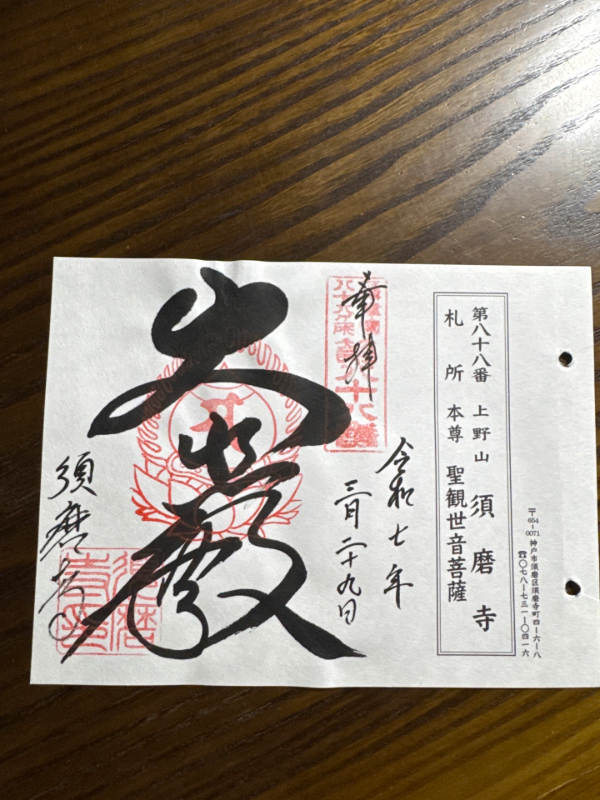 〒654-0071 神戸市須磨区須磨寺町四-六-八
☎〇七八-七三一-〇四一六
第八十八番 上野山 須磨寺
札所本尊 聖観世音菩薩
奉拝
八十八ヶ所
令和七年
三月二十九日
大悲殿
須磨寺
須磨寺印